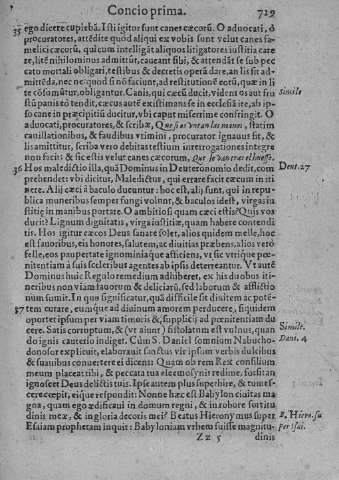 Concio prima. 729
35 ego dicere cupiebã. Isti igitur sunt canes cæcorũ. O aduocati, ò
procuratores, attẽdite quod aliqui ex vobis sunt velut canes fa-
melici cæcorũ, quicum intelligãt aliquos litigatores iustitia care
re, litẽ nihilominus admittũt, caueant sibi, & attendãt se sub pec
cato mortali obligari, testibus & decretis operã dare, an lis sit ad-
mittẽda, nec ne: quod si nõ faciunt, ad restitutionẽ eorũ, quæ in li
te cõsumũtur, obligantur. Canis, qui cæcũ ducit, videns os aut fru
stũ panis eò tendit, cæcus autẽ existimans se in ecclesiã ire, ab ip-
so cane in præcipitiũ ducitur, vbi caput miserrime confringit. O
aduocati, procuratores, & scribæ, statim
cauillationibus, & fraudibus vtimini, procurator ignauus sit, &
lis amittitur, scriba vero debitas testium interrogationes integre
non facit: & sic est is velut canes cæcorum,
36 Hos maledictio illa, quã Dominus in Deuteronomio dedit, com
prehendet: vbi dicitur, Maledictus, qui errare facit cæcum in iti
nere. Alij cæci à baculo ducuntur: hoc est, alij sunt, qui in repu-
blica muneribus semper fungi volunt, & baculos idest, virgas iu
stitię in manibus portare. O ambitiosi quam cæci estis? Quis vos
ducit? Lignum dignitatis, virga iustitiæ, quam habere contendi
tis. Hos igitur cæcos Deus sanare solet, alios quidem melle, hoc
est fauoribus, eis honores, salutem, ac diuitias præbens, alios verò
felle, eos paupertate ignominiaque afficiens, vt sic vtrique pœ-
nitentiam à suis sceleribus agentes ab ipsis deterreantur. Vt autẽ
Dominus huic Regulo remedium adhiberet, ex his duobus iti-
neribus non viam fauorum & deliciarũ, sed laborum & afflictio
num sumit. In quo significatur, quã difficile sit diuitem ac potẽ-
37 tem curare, eumque ad diuinum amorem perducere, siquidem
oportet ipsum per viam timoris &, supplicij ad pœnitentiam du
cere. Satis corruptum, & (vt aiunt) fistolatum est vulnus, quan
do ignis cauterio indiget. Cùm S. Daniel somnium Nabucho-
donosor explicuit, elaborauit sanctus vir ipsum verbis dulcibus
& suauibus conuertere ei dicens: Quam ob rem Rex consilium
meum placeat tibi, & peccata tua eleemosynis redime, forsitan
ignoscet Deus delictis tuis. Ipse autem plus superbire, & tumes-
cere cœpit, eique respondit: Nonne hæc est Babylon ciuitas ma
gna, quam ego ædificaui in domum regni, & in robore fortitu
dinis meæ, & in gloria decoris mei? Beatus Hieronymus super
Esaiam prophetam inquit: Babyloniam vrbem fuisse magnitu-
Zz 5 dinis
Simile
Deut. 27
Simile.
Dani. 4
B. Hiero. su
per Isai.